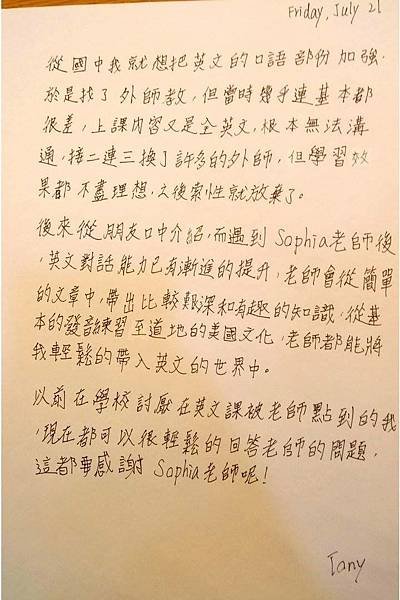 Friday, July 21
從國中我就想把英文的口語部份加強.
於是找了外師教，但當時幾乎連基本都
很差，上課內容又是全英文，根本無法溝
通，接二連三換了許多的外師，但學習效
果都不盡理想，之後索性就放棄了。
後來從朋友口中介紹，而遇到 Sophia老師後
，英文對話能力已有漸進的提升，老師會從簡單
的文章中，帶出比較艱深和有趣的知識，從基
本的發音練習至道地的美國文化，老師都能將
我輕鬆的帶入英文的世界中。
以前在學校討厭在英文課被老師點到的我
，現在都可以很輕鬆的回答老師的問題，
這都要感謝 Sophia老師呢！
Tany